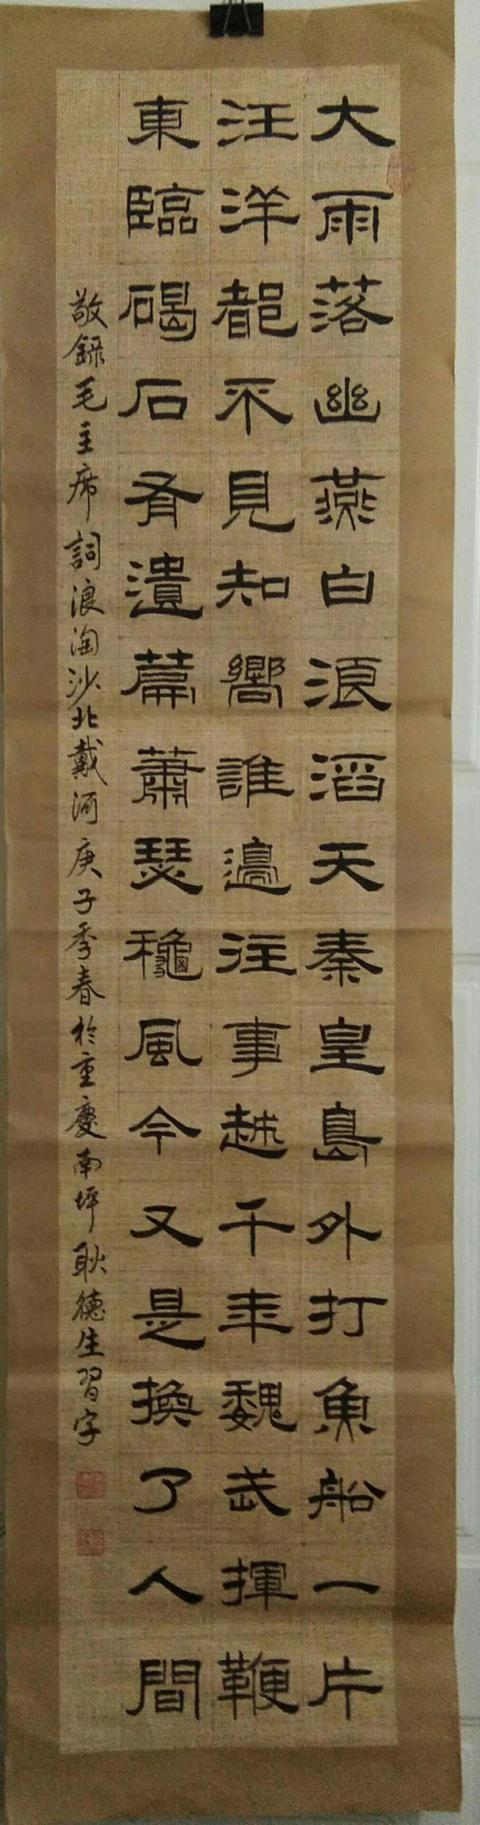 大雨落幽燕白浪滔天秦皇島外打魚船一片
汪洋都不見知嚮誰邊往事越千年魏武揮鞭
東臨碣石有遺篇蕭瑟龝風今又是換了人間
敬錄毛主席詞浪淘沙北戴河庚子季春於重慶南坪耿德生習字